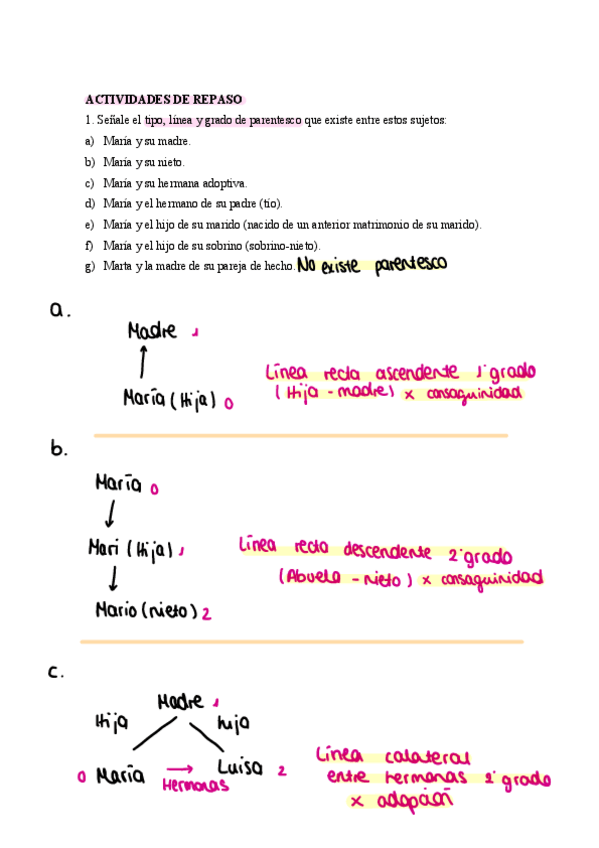 ACTIVIDADES DE REPASO
1. Señale el tipo, línea y grado de parentesco que existe entre estos sujetos:
a) María y su madre.
b) María y su nieto.
c) María y su hermana adoptiva.
d) María y el hermano de su padre (tío).
e) María y el hijo de su marido (nacido de un anterior matrimonio de su marido).
f) María y el hijo de su sobrino (sobrino-nieto).
g) Marta y la madre de su pareja de hecho. No existe parentesco
a.
Madre 1
María (Hija) 0
Línea recta ascendente 1º grado
(Hija - madre) x consaguinidad
b.
María 0
Mari (Hija) 1
Mario (nieto) 2
Línea recta descendente 2º grado
(Abuela - nieto) x consaguinidad
c.
Madre 1
Hija hija
0 María → Luisa 2
Hermanas
Línea colateral
entre hermanas 2º grado
x adopción